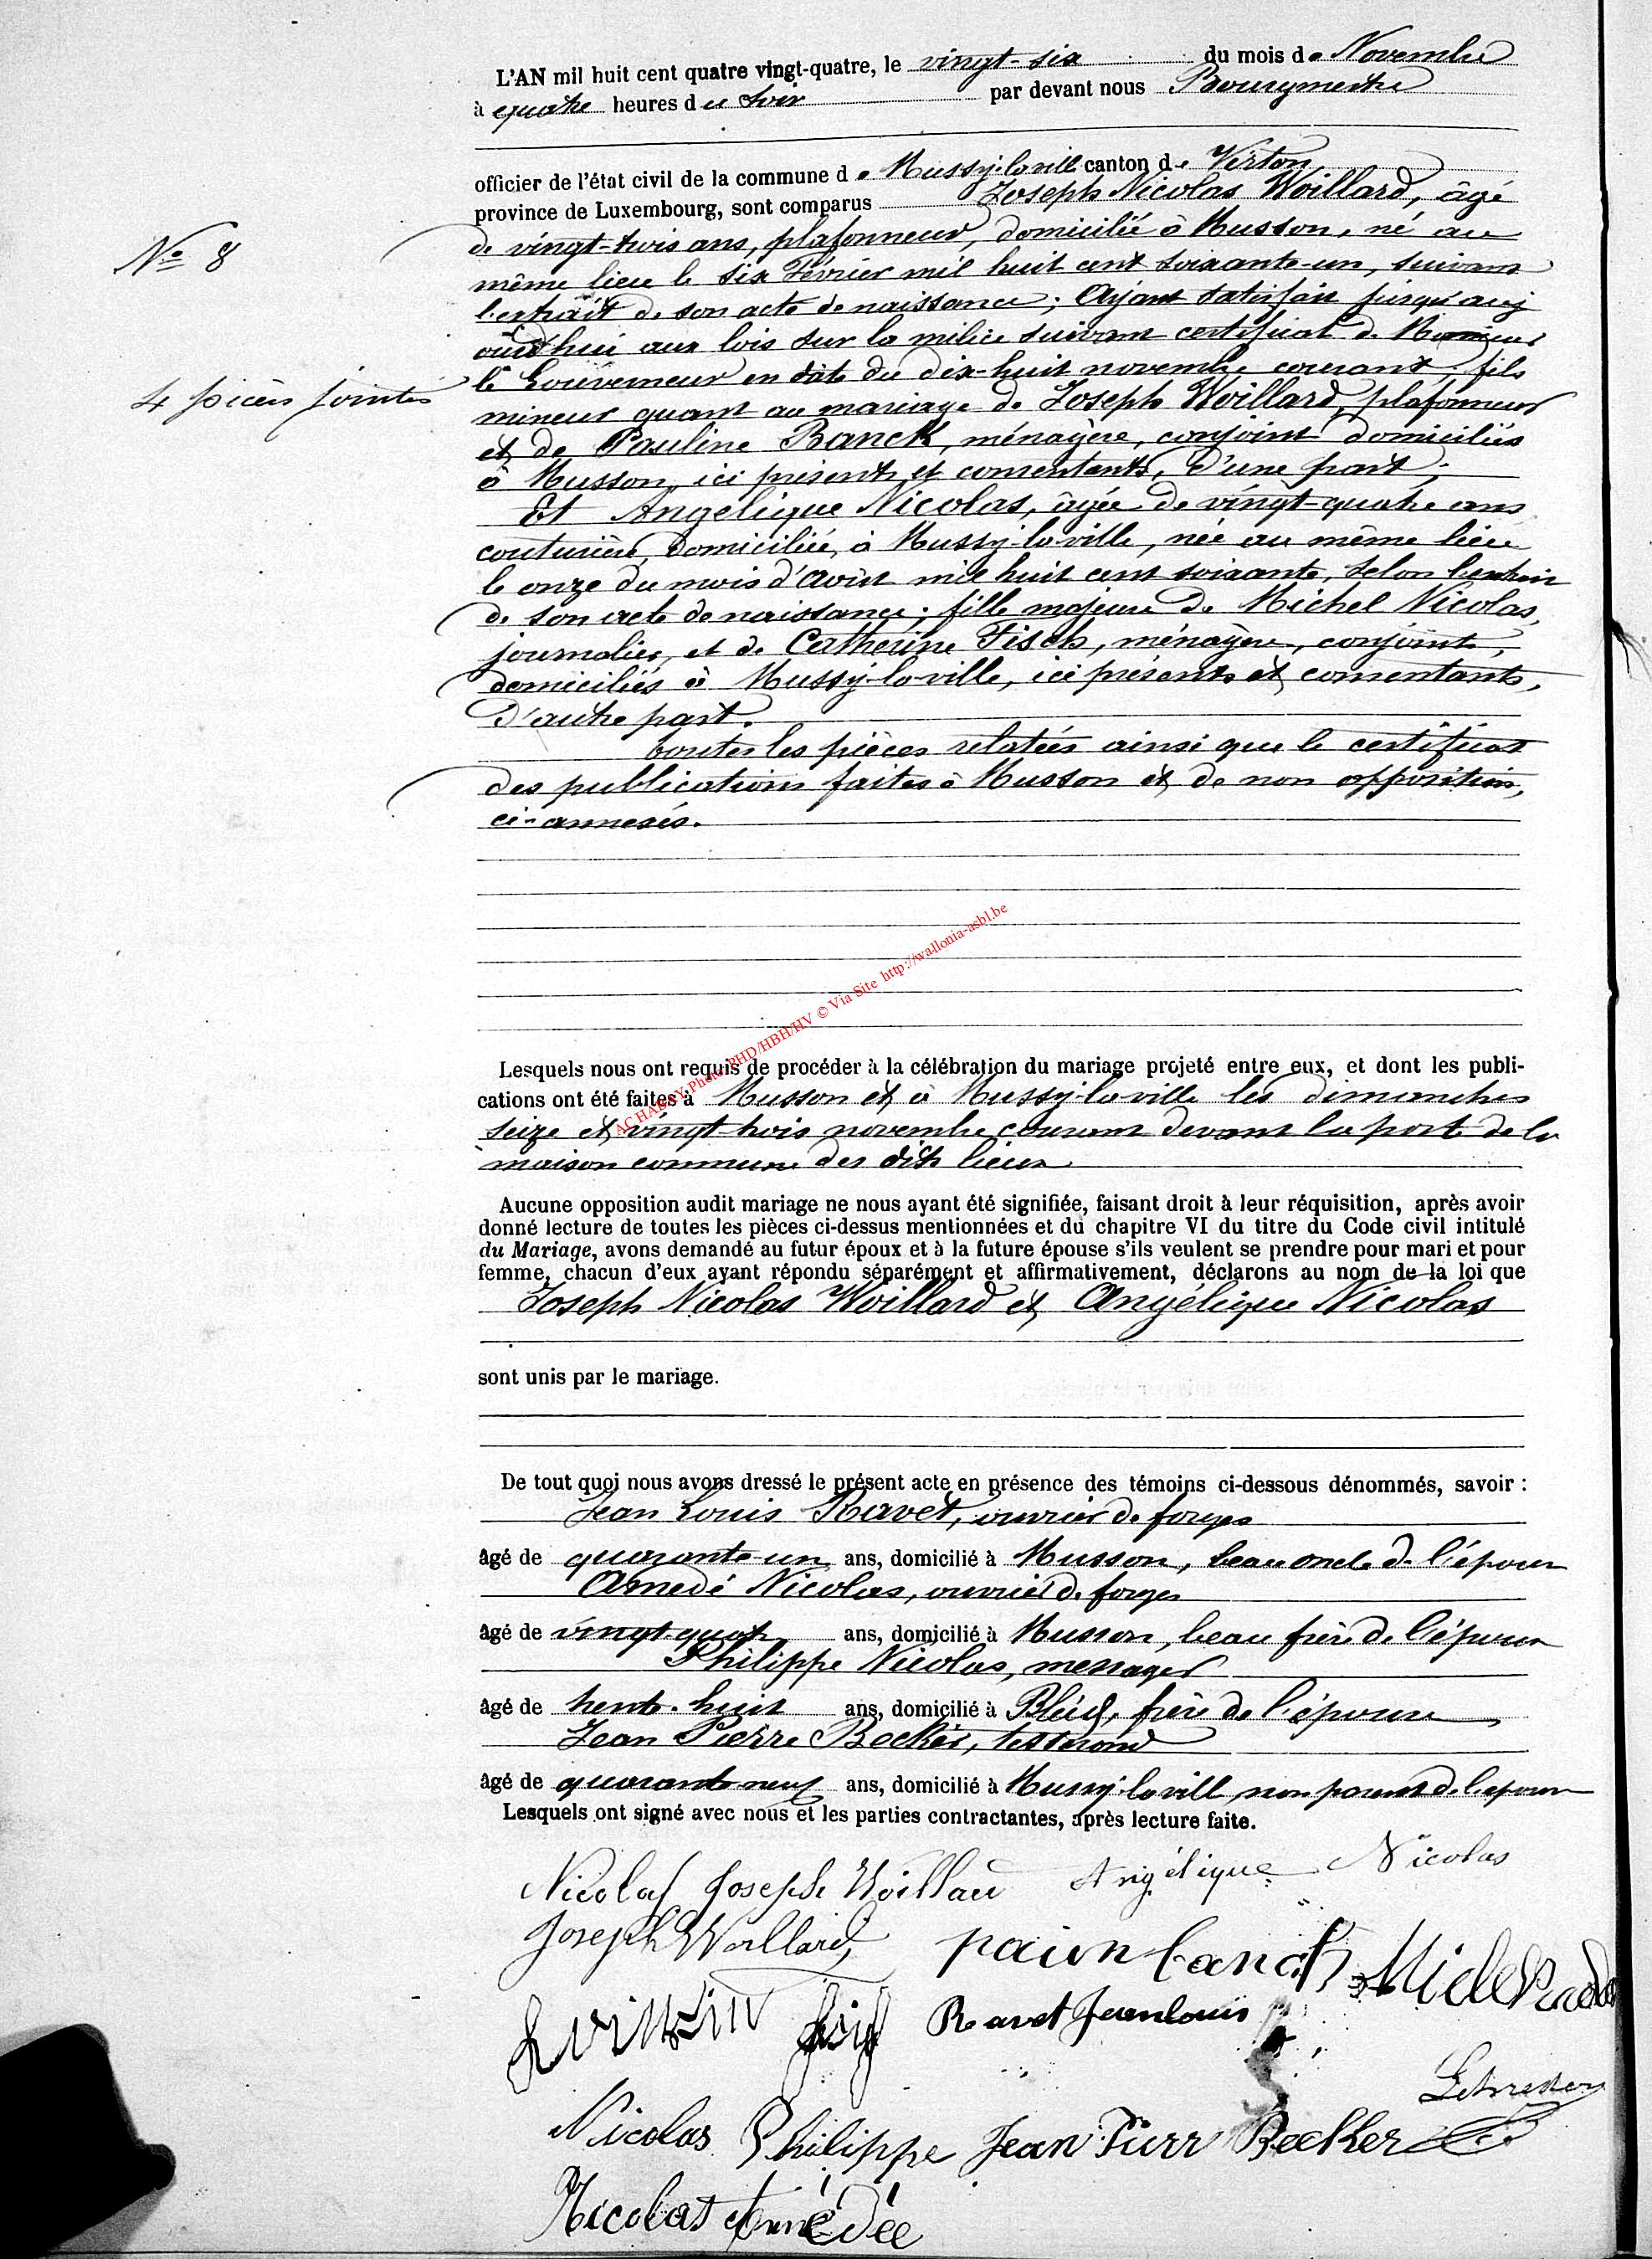 L'AN mil huit cent quatre vingt-quatre, le vingt-six du mois de Novembre
à quatre heures du soir par devant nous Bourgmestre
officier de l'état civil de la commune de Mussy-la-ville canton de Virton
province de Luxembourg, sont comparus Joseph Nicolas Woillard, âgé
de vingt-trois ans, plafonneur, domicilié à Musson, né au
N° 8
même lieu le six Février mil huit cent soixante-un, suivant
l'extrait de son acte de naissance; Ayant satisfait jusqu'auj
ourd'hui aux lois sur la milice suivant certificat de Monsieur
le Gouverneur en date du dix-huit novembre courant, fils
4 pièces jointes
mineur quant au mariage de Joseph Woillard, plafonneur
et de Pauline Banck, ménagère, conjoints domiciliés
à Musson, ici présents et consentants, d'une part;
Et Angélique Nicolas, âgée de vingt-quatre ans
couturière, domiciliée à Mussy-la-ville, née au même lieu
le onze du mois d'Août mil huit cent soixante, selon l'extrait
de son acte de naissance; fille majeure de Michel Nicolas,
journalier, et de Catherine Fisch, ménagère, conjoints,
domiciliés à Mussy-la-ville, ici présents et consentants,
d'autre part.
toutes les pièces relatées ainsi que le certificat
des publications faites à Musson et de non opposition,
ci-annexés.
ACHABBY Photo PHD/HBH/HV © Via Site http://wallonia-asbl.be
Lesquels nous ont requis de procéder à la célébration du mariage projeté entre eux, et dont les publi-
cations ont été faites à Musson et à Mussy-la-ville les dimanches
seize et vingt-trois novembre courant devant la porte de la
maison commune des dits lieux
Aucune opposition audit mariage ne nous ayant été signifiée, faisant droit à leur réquisition, après avoir
donné lecture de toutes les pièces ci-dessus mentionnées et du chapitre VI du titre du Code civil intitulé
du Mariage, avons demandé au futur époux et à la future épouse s'ils veulent se prendre pour mari et pour
femme, chacun d'eux ayant répondu séparément et affirmativement, déclarons au nom de la loi que
Joseph Nicolas Woillard et Angélique Nicolas
sont unis par le mariage.
De tout quoi nous avons dressé le présent acte en présence des témoins ci-dessous dénommés, savoir :
Jean Louis Ravet, ouvrier de forges
âgé de quarante-un ans, domicilié à Musson, beau oncle de l'époux
Amedé Nicolas, ouvrier de forges
âgé de vingt-quatre ans, domicilié à Musson, beau frère de l'époux
Philippe Nicolas, messager
âgé de trente-huit ans, domicilié à Bleid, frère de l'épouse
Jean Pierre Becker, tisserand
âgé de quarante-neuf ans, domicilié à Mussy-la-vill, non parent de l'époux
Lesquels ont signé avec nous et les parties contractantes, après lecture faite.
Nicolas Joseph Woillard Angélique Nicolas
Joseph Woillard
Ravet Jeanlouis
Nicolas Philippe Jean Pierr Becker
Nicolas Amédée